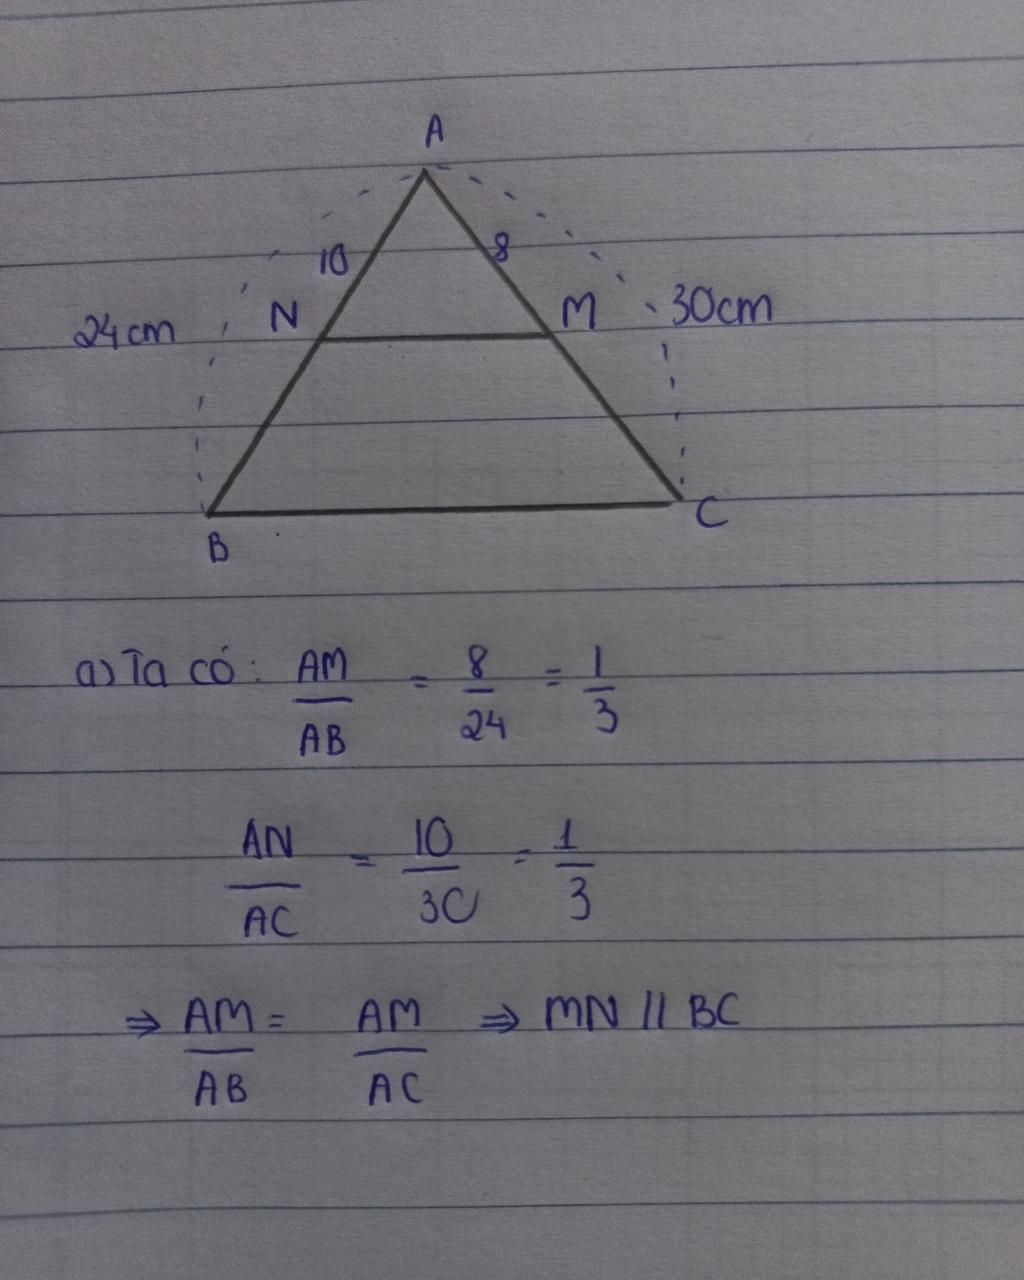 A
10 8
24cm N M 30cm
B C
a) Ta có: AM/AB = 8/24 = 1/3
AN/AC = 10/30 = 1/3
⇒ AM/AB = AM/AC ⇒ MN // BC